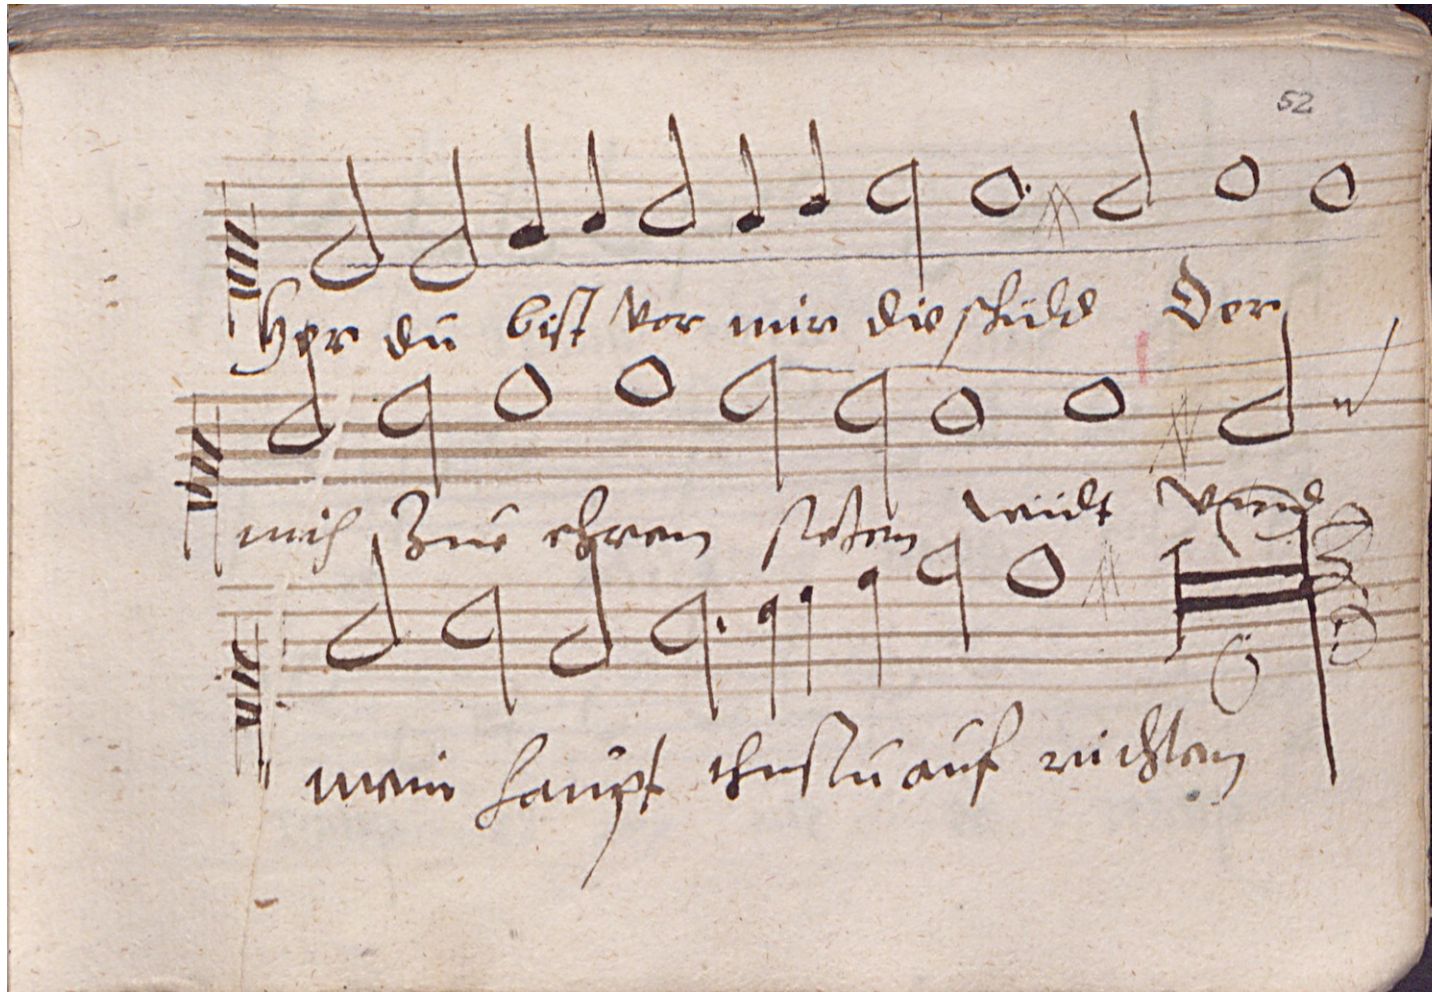 52
Her du bist vor mir die schild Der
mich Zue ehren setzen wirdt vnnd
mein haupt thustu auf richten